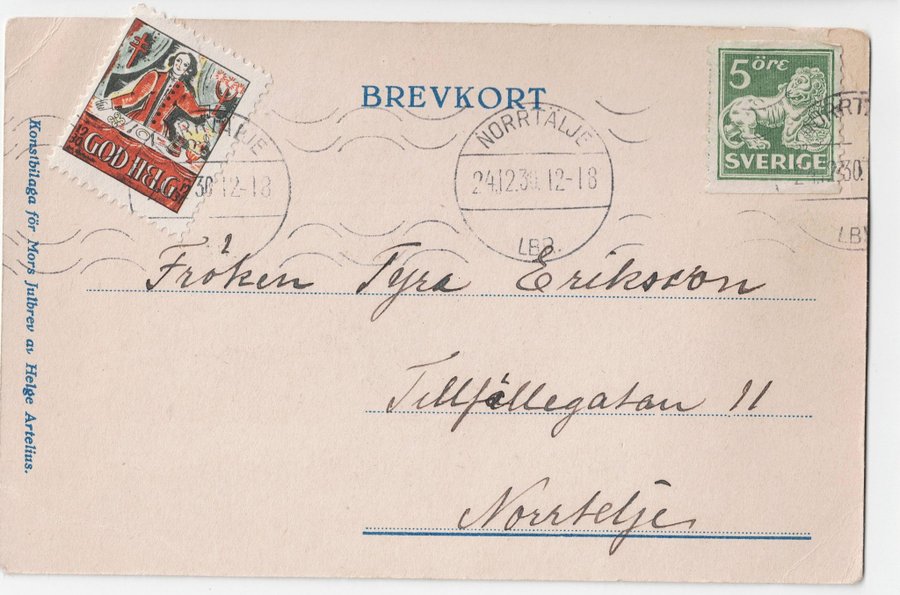 BREVKORT
5 öre
SVERIGE
GOD JUL
1930
NORRTÄLJE
24.12.30. 12-18
LBR.
30. 12-18
Fröken Tyra Eriksson
Tillfällegatan 11
Norrtelje
Konstbilaga för Mors Julbrev av Helge Artelius.